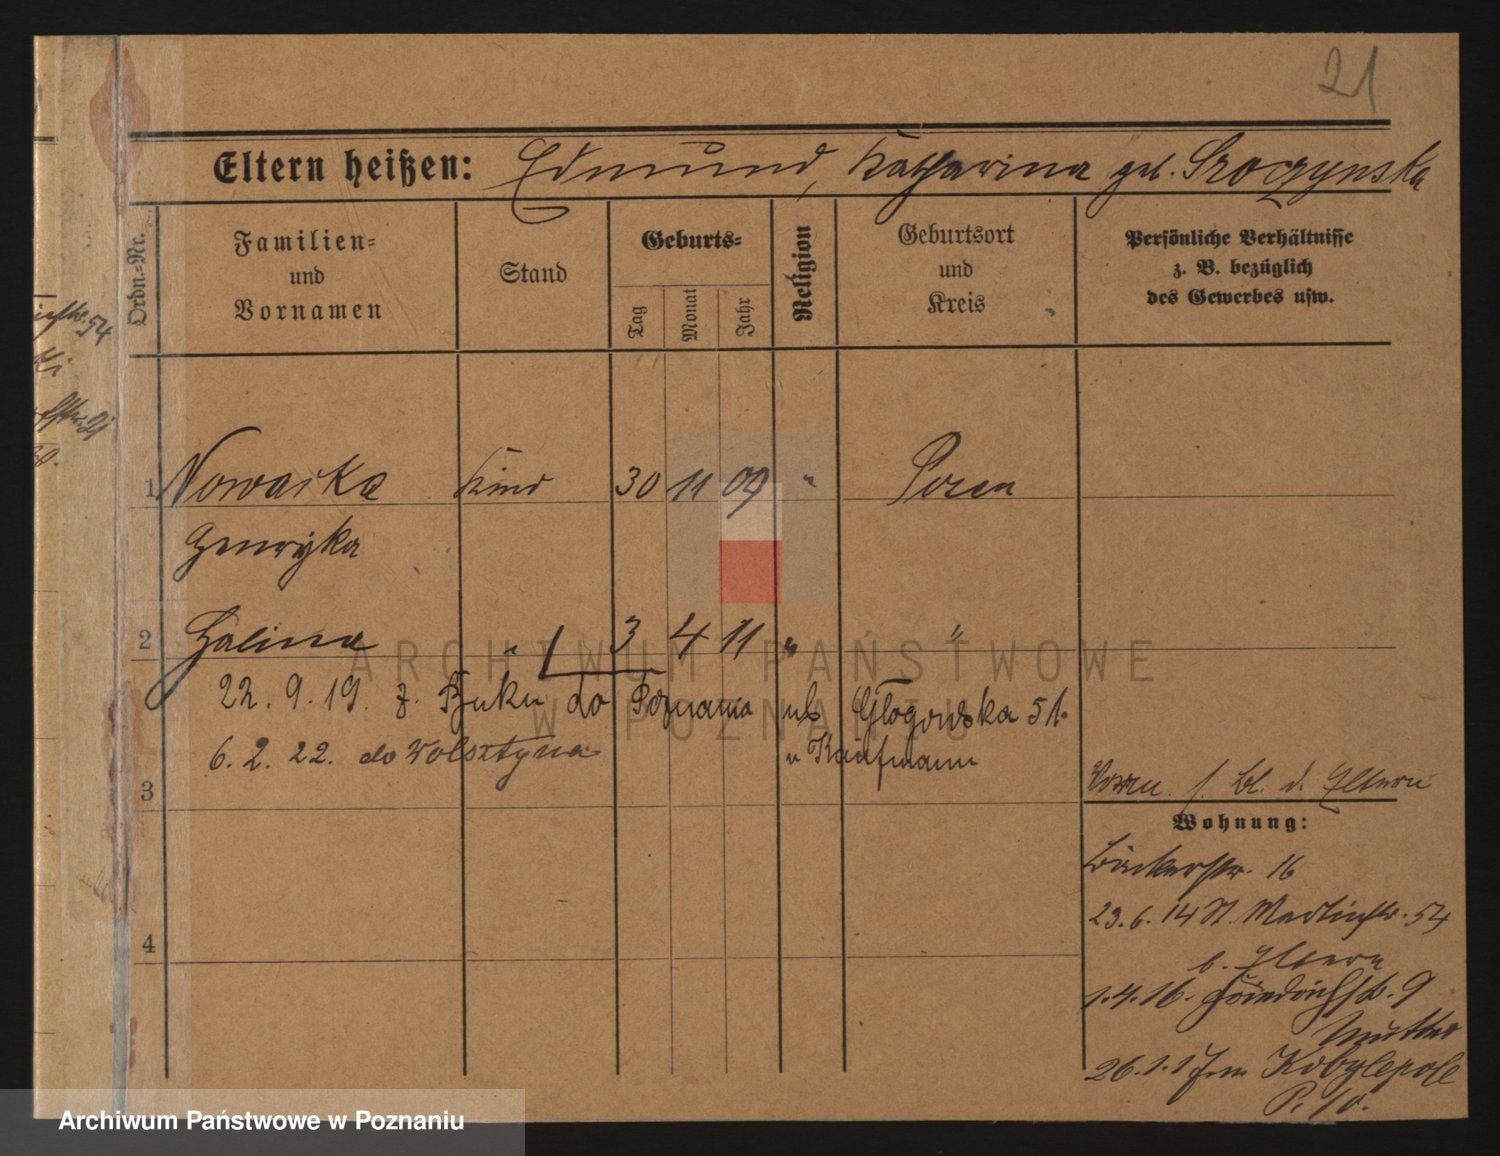 21
Eltern heißen: Edmund, Katharina geb. Sroczynska
Ordn.-Nr.
Familien-
und
Vornamen
Stand
Geburts-
Tag
Monat
Jahr
Religion
Geburtsort
und
Kreis
Persönliche Verhältnisse
z. B. bezüglich
des Gewerbes usw.
1 Nowacka Kind 30 11 09 " Posen
Henryka
2 Halina " 3 4 11 " "
ARCHIWUM PAŃSTWOWE
W POZNANIU
22. 9. 19. z. Buku do Poznania ul. Głogowska 51.
6. 2. 22. do Wolsztyna u Kaufmann
3
s. Bl. d. Eltern
Wohnung:
Bäckerstr. 16
23. 6. 14 St. Martinstr. 54
b. Eltern
1. 4. 16. Friedrichstr. 9
Mutter
26. 1. 17 Kobylepole
P. 10.
4
54
Archiwum Państwowe w Poznaniu